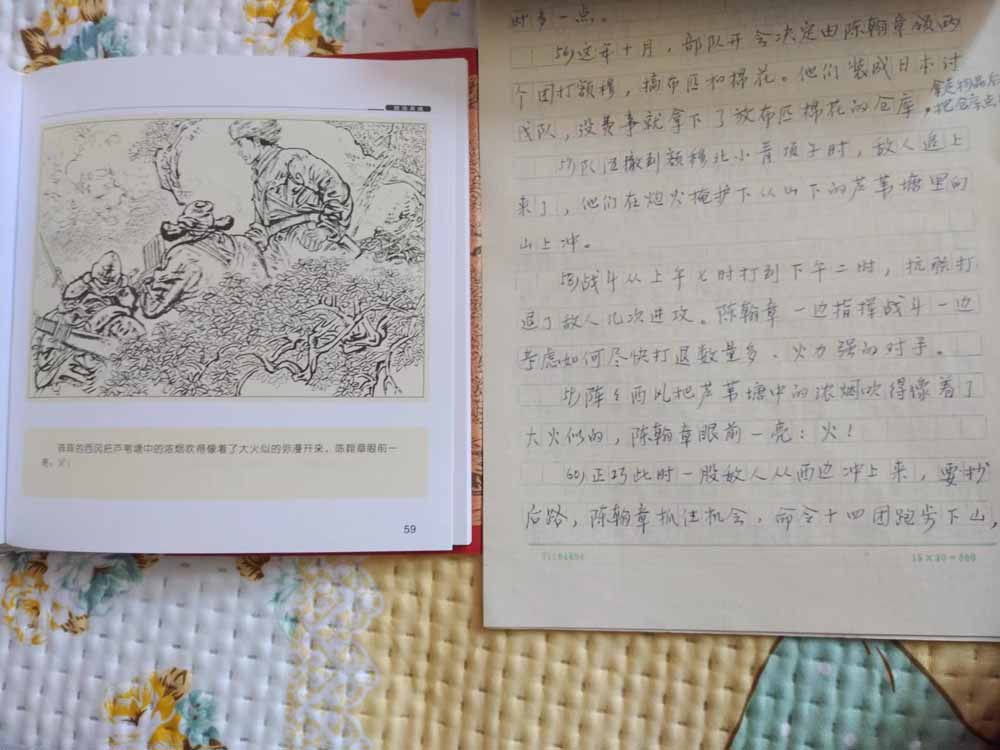 阵阵的西风把芦苇塘中的浓烟吹得像着了大火似的弥漫开来，陈翰章眼前一
亮：火！
59
时多一点。
56)这年十月，部队开会决定由陈翰章领两
个团打额穆，搞布匹和棉花。他们装成日本讨
伐队，没费事就拿下了放布匹棉花的仓库，拿走物品后
把仓库点
57)队伍撤到额穆北小青顶子时，敌人追上
来了，他们在炮火掩护下从山下的芦苇塘里向
山上冲。
58)战斗从上午七时打到下午二时，抗联打
退了敌人几次进攻。陈翰章一边指挥战斗一边
考虑如何尽快打退数量多、火力强的对手。
59)阵阵西风把芦苇塘中的浓烟吹得像着了
大火似的，陈翰章眼前一亮：火！
60)正巧此时一股敌人从西边冲上来，要抄
后路，陈翰章抓住机会，命令十四团跑步下山，
15×20=300